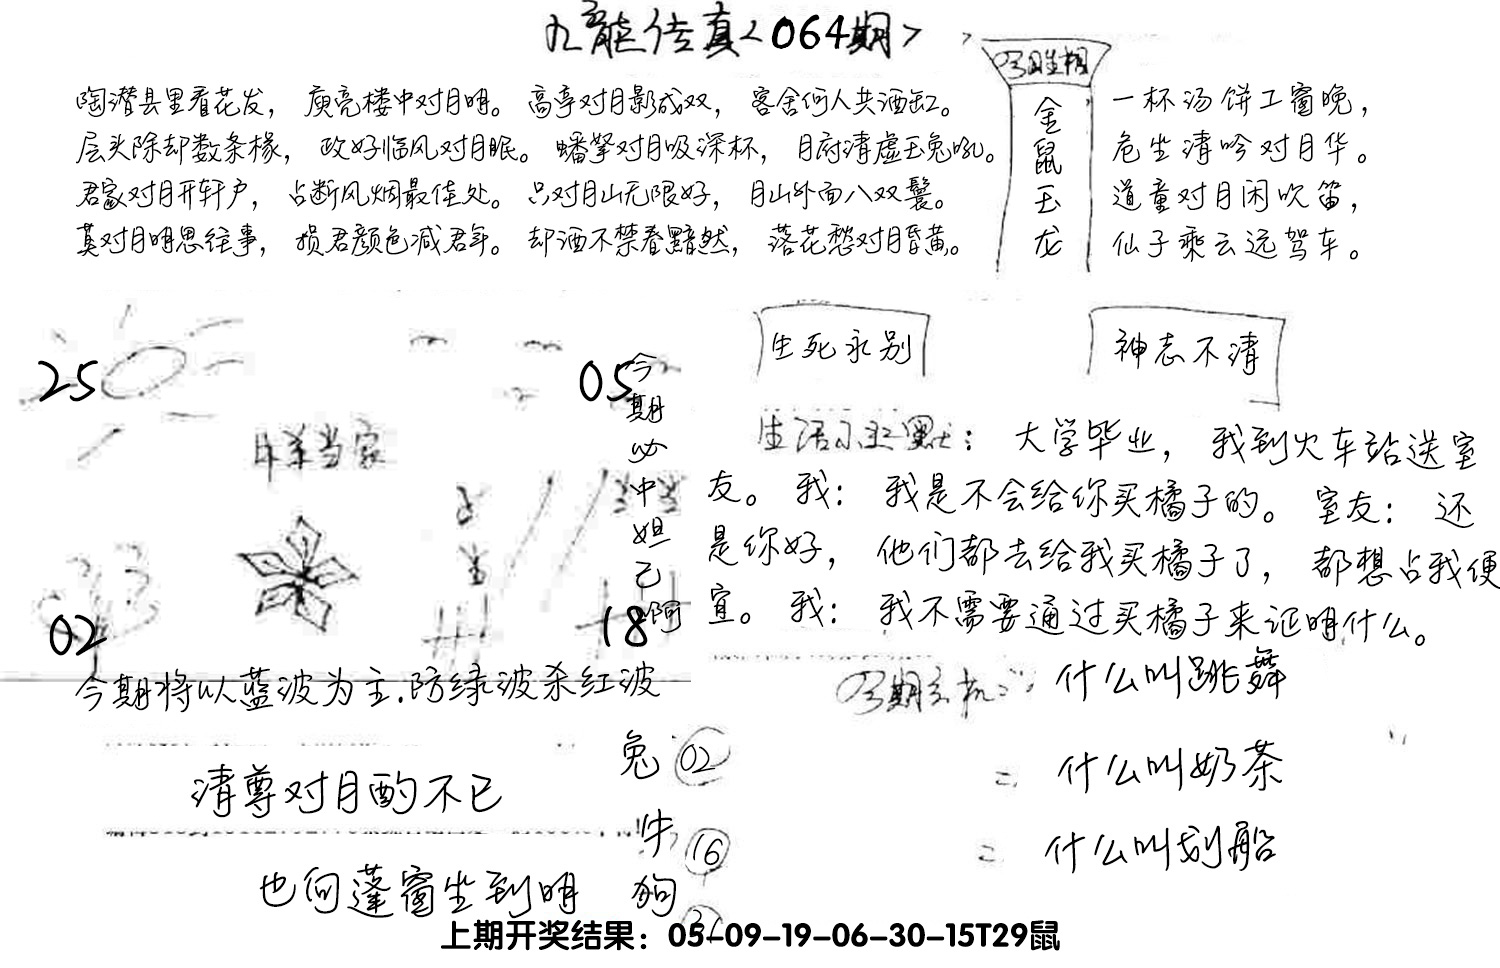 九龍传真<064期>
陶潜县里看花发，庾亮楼中对月明。高亭对月影成双，客舍何人共酒缸。
层头除却数条椽，政好临风对月眠。蟠拏对月吸深杯，月府清虚玉兔吼。
君家对月开轩户，占断风烟最佳处。只对月山无限好，月山外面八双鬟。
莫对月明思往事，损君颜色减君年。却酒不禁春黯然，落花愁对月昏黄。
今期生相
金鼠玉龙
一杯汤饼工窗晚，
危坐清吟对月华。
道童对月闲吹笛，
仙子乘云远驾车。
生死永别
神志不清
25
05
02
18
今期必中妲己啊
当家
生活小幽默：大学毕业，我到火车站送室
友。我：我是不会给你买橘子的。室友：还
是你好，他们都去给我买橘子了，都想占我便
宜。我：我不需要通过买橘子来证明什么。
今期将以蓝波为主.防绿波杀红波
今期玄机
什么叫跳舞
二 什么叫奶茶
二 什么叫划船
清尊对月酌不已
也向蓬窗坐到明
兔 02
牛 16
狗
上期开奖结果：05-09-19-06-30-15T29鼠